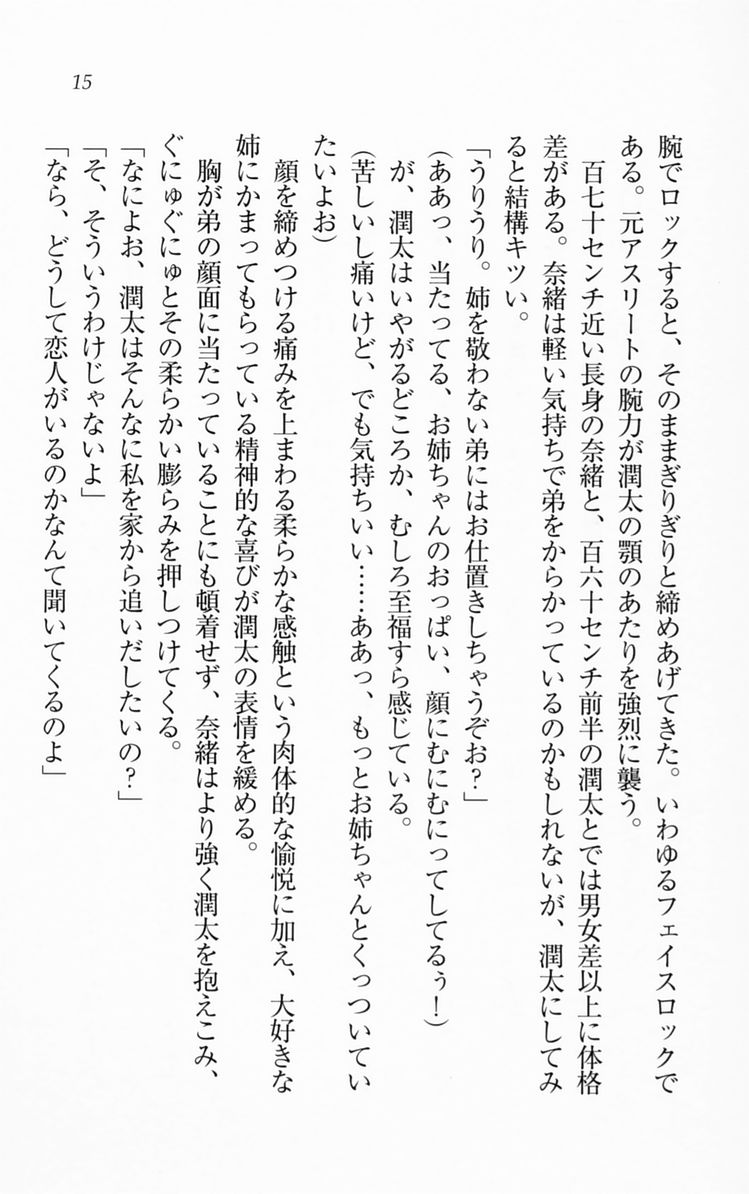 15
腕でロックすると、そのままぎりぎりと締めあげてきた。いわゆるフェイスロックで
ある。元アスリートの腕力が潤太の顎のあたりを強烈に襲う。
百七十センチ近い長身の奈緒と、百六十センチ前半の潤太とでは男女差以上に体格
差がある。奈緒は軽い気持ちで弟をからかっているのかもしれないが、潤太にしてみ
ると結構キツい。
「うりうり。姉を敬わない弟にはお仕置きしちゃうぞお?」
(ああっ、当たってる、お姉ちゃんのおっぱい、顔にむにむにってしてるぅ!)
が、潤太はいやがるどころか、むしろ至福すら感じている。
(苦しいし痛いけど、でも気持ちいい……ああっ、もっとお姉ちゃんとくっついてい
たいよお)
顔を締めつける痛みを上まわる柔らかな感触という肉体的な愉悦に加え、大好きな
姉にかまってもらっている精神的な喜びが潤太の表情を緩める。
胸が弟の顔面に当たっていることにも頓着せず、奈緒はより強く潤太を抱えこみ、
ぐにゅぐにゅとその柔らかい膨らみを押しつけてくる。
「なによお、潤太はそんなに私を家から追いだしたいの?」
「そ、そういうわけじゃないよ」
「なら、どうして恋人がいるのかなんて聞いてくるのよ」